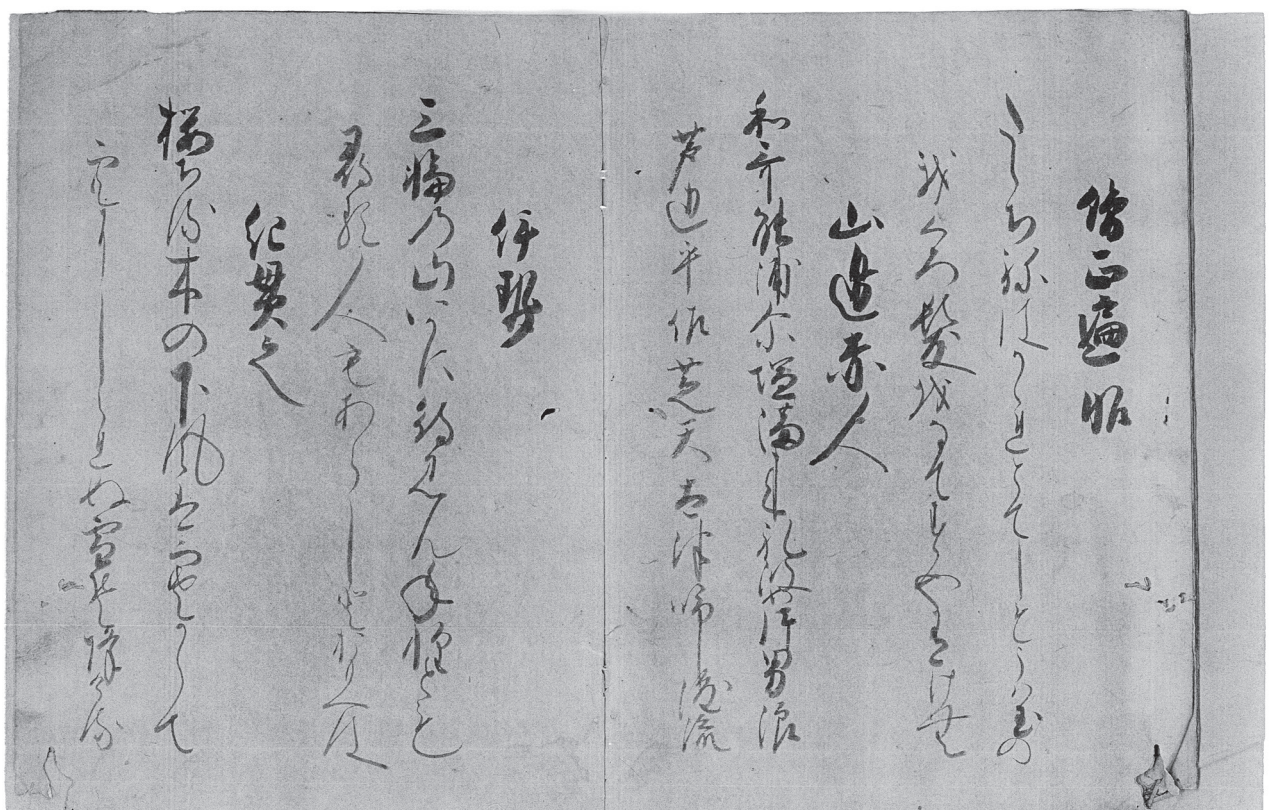 僧正遍昭
たらちねはかゝれとてしもうは玉の
我くろ髪越なてすや有けむ
山邊赤人
和哥能浦尓塩満来礼波片男浪
芦邊乎佐芝天多津啼渡流
伊勢
三輪乃山いかに待見ん年経とも
尋ぬる人もあらしとおもへは
紀貫之
桜ちる木の下風は寒からて
空にしられぬ雪そ降ける